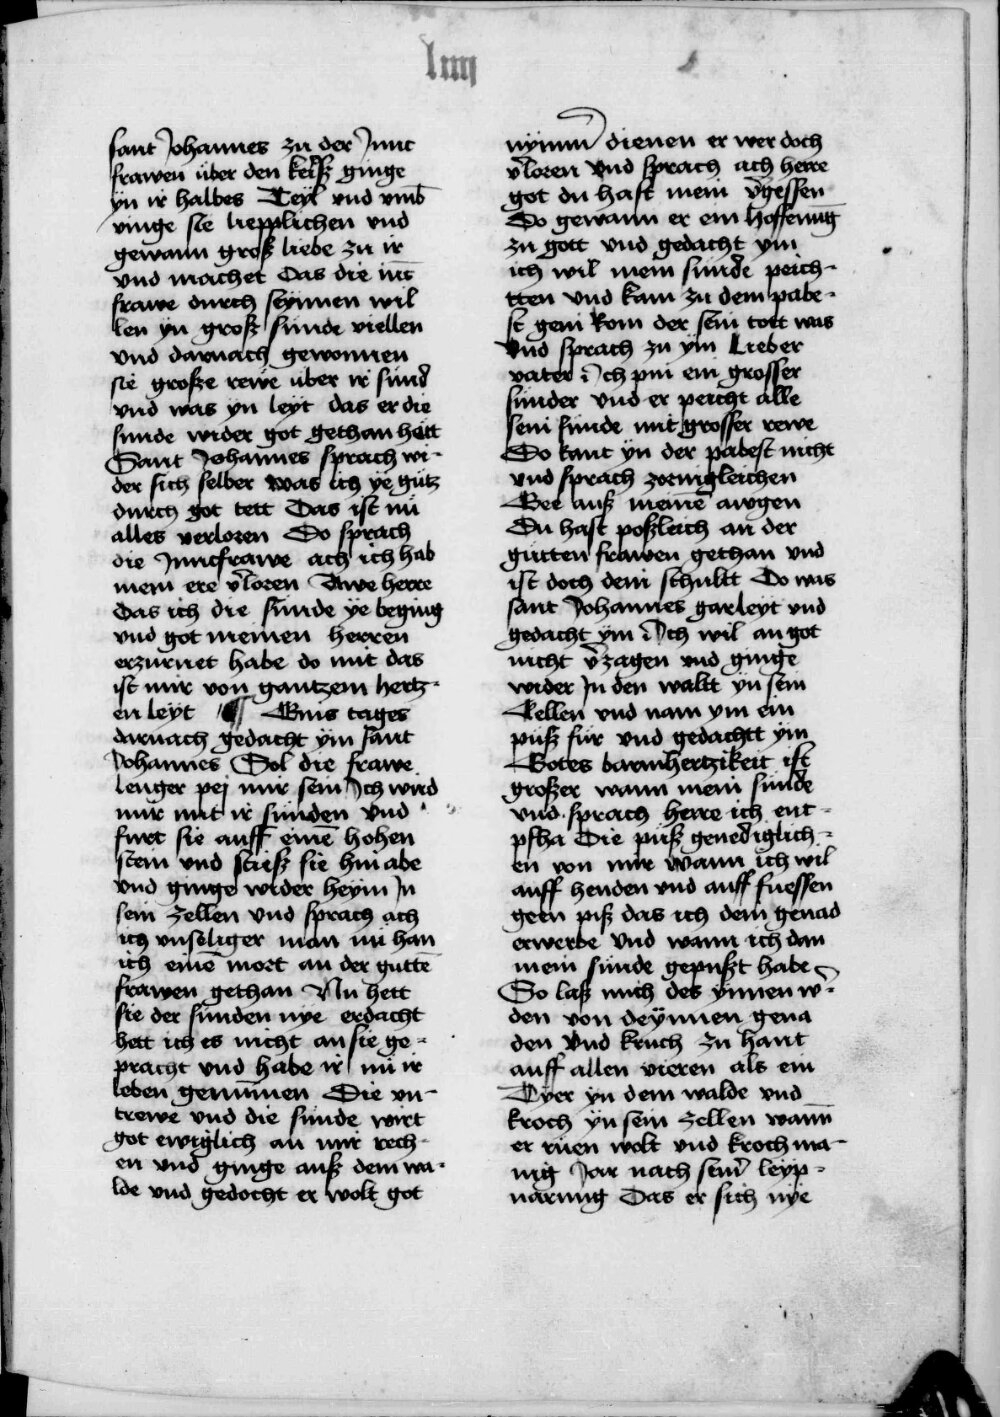 liiij
sant Johannes zu der Junc
frawen über den kreisz ginge
yn ir halbes Teyl vnd vmb
vinge sie liepplichen vnd
gewann grosz liebe zu ir
vnd machet Das die iūc
frawe durch seynnen wil
len yn grosz sünde viellen
vnd darnach gewonnen
sie grosze rewe über ir sünd
vnd was yn leyt das er die
sunde wider got gethan hett
Sant Johannes sprach wi-
der sich selber was ich ye gutz
durch got tett Das ist nü
alles verloren Do sprach
die Junckfrawe ach ich hab
mein ere v̄loren Awe herre
Das ich die sunde ye beging
vnd got meinen herren
erzurnet habe do mit das
ist mir von gantzem hertz-
en leyt ¶ Eins tages
darnach gedacht ym sant
Johannes Sol die frawe
lenger pej mir sein Ich wird
mir mit ir sunden Vnd
furt sie auff einē hohen
stein vnd stiesz sie hin abe
vnd ginge wider heym In
sein zellen vnd sprach ach
ich vnseliger man nü han
ich einē mort an der guttē
frawen gethan Nu hett
sie der sunden nye erdacht
hett ich es nicht an sie ge-
pracht vnd habe ir nü ir
leben genūmen Die vn-
trewe vnd die sunde wirt
got ewiglich an mir rech-
en vnd ginge ausz dem wa-
lde vnd gedocht er wolt got
nymm̄ dienen er wer doch
v̄loren Vnd sprach ach herre
got du hast mein v̄gessen
Do gewann er ein hoffenūg
zu gott vnd gedacht ym
ich wil mein sünde peich-
tten vnd kam zu dem pabe-
st gein Rom der sein tott was
Vnd sprach zu ym Lieber
vater Ich pin ein grosser
sünder vnd er peicht alle
sein sünde mit grosser rewe
Do kant yn der pabest nicht
vnd sprach zornigleichen
Gee ausz meinē awgen
Du hast poszleich an der
gutten frawen gethan vnd
ist doch dein schultt Do was
sant Johannes gar leyt vnd
gedacht ym Ich wil an got
nicht v̄zagen vnd ginge
wider In den waltt yn sein
Zellen vnd nam ym ein
pusz für vnd gedachtt ym
Gotes barmhertzikeit ist
groszer wann mein sünde
vnd sprach herre ich ent-
pfha Die pusz genediglich-
en von mir Wann ich wil
auff henden vnd auff fuessen
geen pisz das ich dein genad
erwerbe Vnd wann ich dan
mein sünde gepuszt habe
So lasz mich des ynnen w̄-
den von deynnen gena
den Vnd kruch zu hant
auff allen vieren als ein
Tyer yn dem walde vnd
kroch yn sein zellen wann̄
er rüen wolt vnd kroch ma-
nig Jar nach sein̄ leyp-
narung Das er sich nye